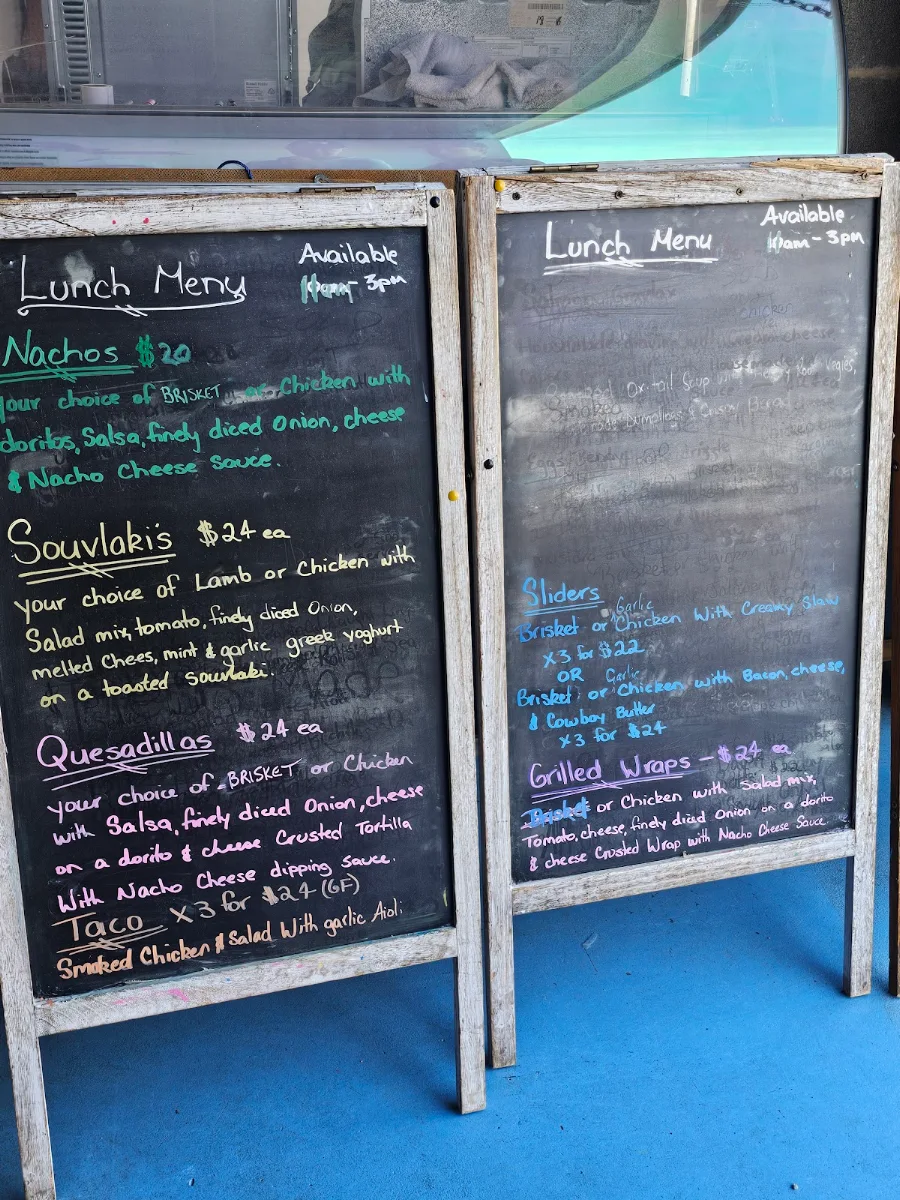 Lunch Menu
Available
11am - 3pm
Nachos $20
your choice of BRISKET or Chicken with
doritos, Salsa, finely diced Onion, cheese
& Nacho Cheese Sauce.
Souvlaki's $24 ea
your choice of Lamb or Chicken with
Salad mix, tomato, finely diced Onion,
melted Chees, mint & garlic greek yoghurt
on a toasted souvlaki.
Quesadillas $24 ea
your choice of BRISKET or Chicken
with Salsa, finely diced Onion, cheese
on a dorito & cheese Crusted Tortilla
With Nacho Cheese dipping Sauce.
Taco x3 for $24 (GF)
Smoked Chicken & Salad With garlic Aioli
Lunch Menu
Available
- 3pm
Sliders
Garlic
Brisket or Chicken With Creamy Slaw
x3 for $22
OR
Garlic
Brisket or Chicken with Bacon, cheese,
& Cowboy Butter
x3 for $24
Grilled Wraps - $24 ea
Brisket or Chicken with Salad mix,
Tomato, cheese, finely diced Onion on a dorito
& cheese Crusted Wrap with Nacho Cheese Sauce